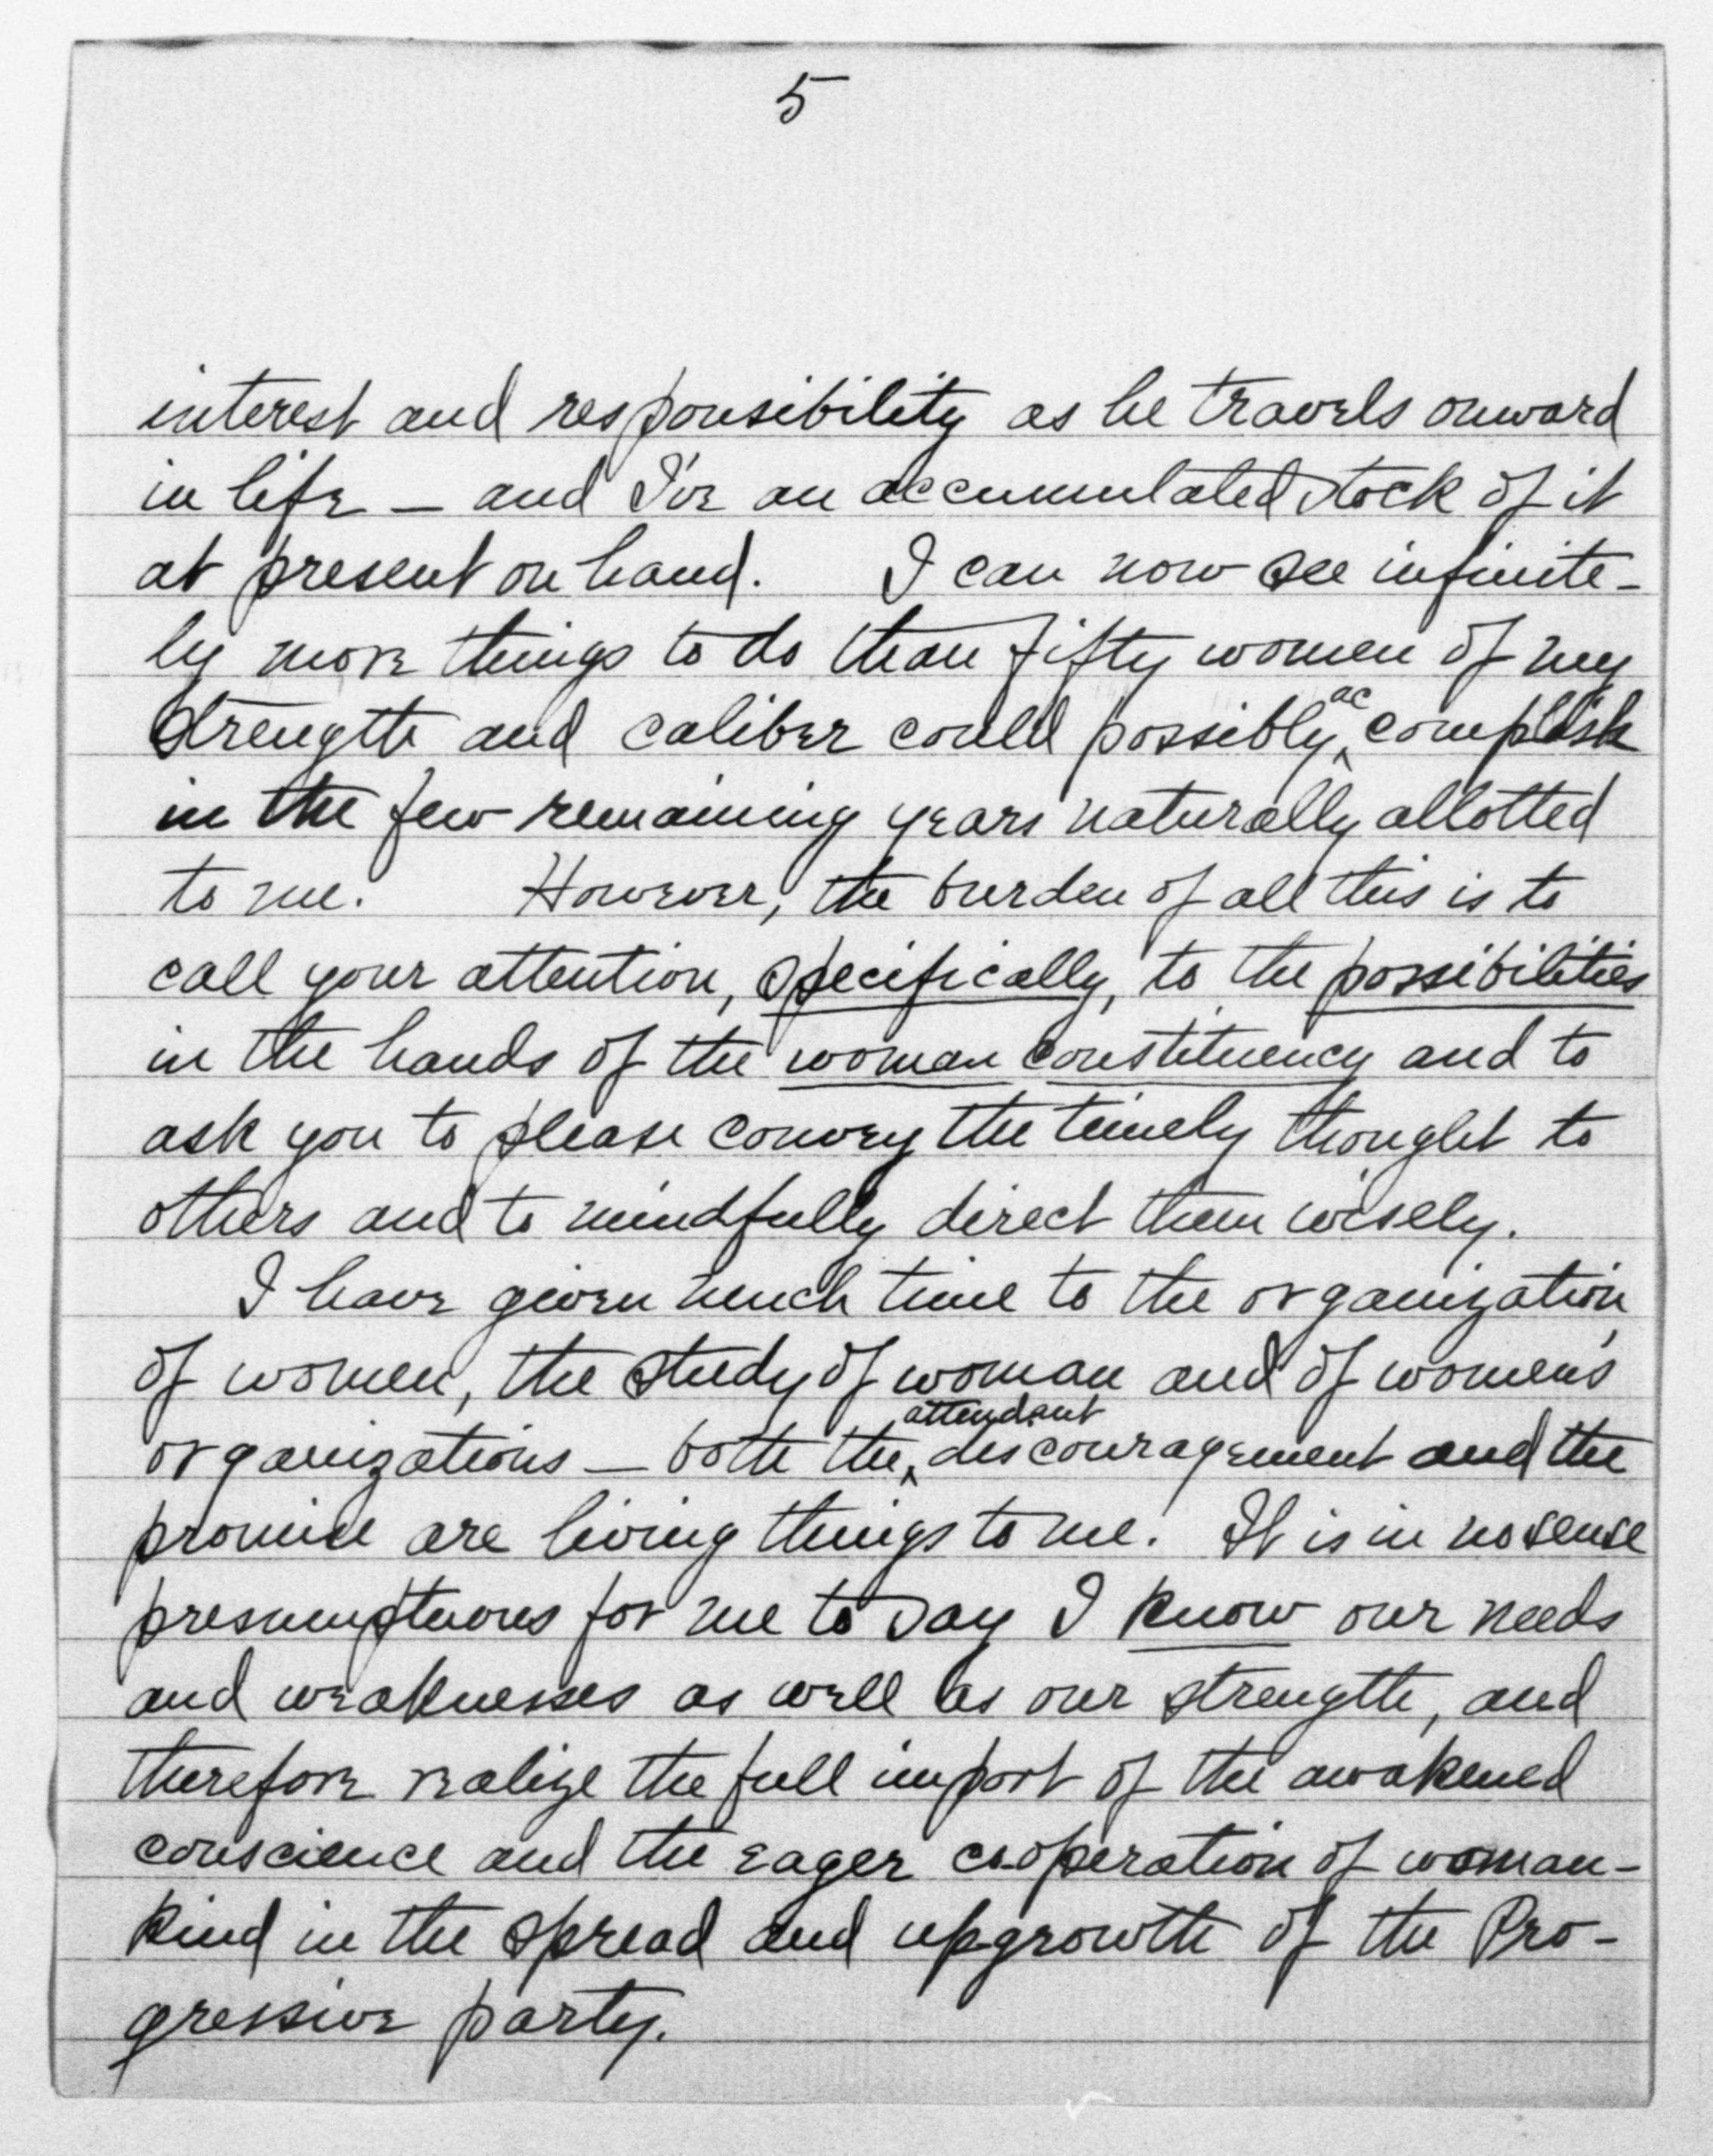 5
interest and responsibility as he travels onward
in life — and I've an accumulated stock of it
at present on hand. I can now see infinite-
ly more things to do than fifty women of my
strength and caliber could possibly accomplish
in the few remaining years naturally allotted
to me. However, the burden of all this is to
call your attention, specifically, to the possibilities
in the hands of the woman constituency and to
ask you to please convey the timely thought to
others and to mindfully direct them wisely.
I have given much time to the organization
of women, the study of woman and of women's
organizations — both the attendant discouragement and the
promise are living things to me. It is in no sense
presumptuous for me to say I know our needs
and weaknesses as well as our strength, and
therefore realize the full import of the awakened
conscience and the eager co-operation of woman-
kind in the spread and upgrowth of the Pro-
gressive party.